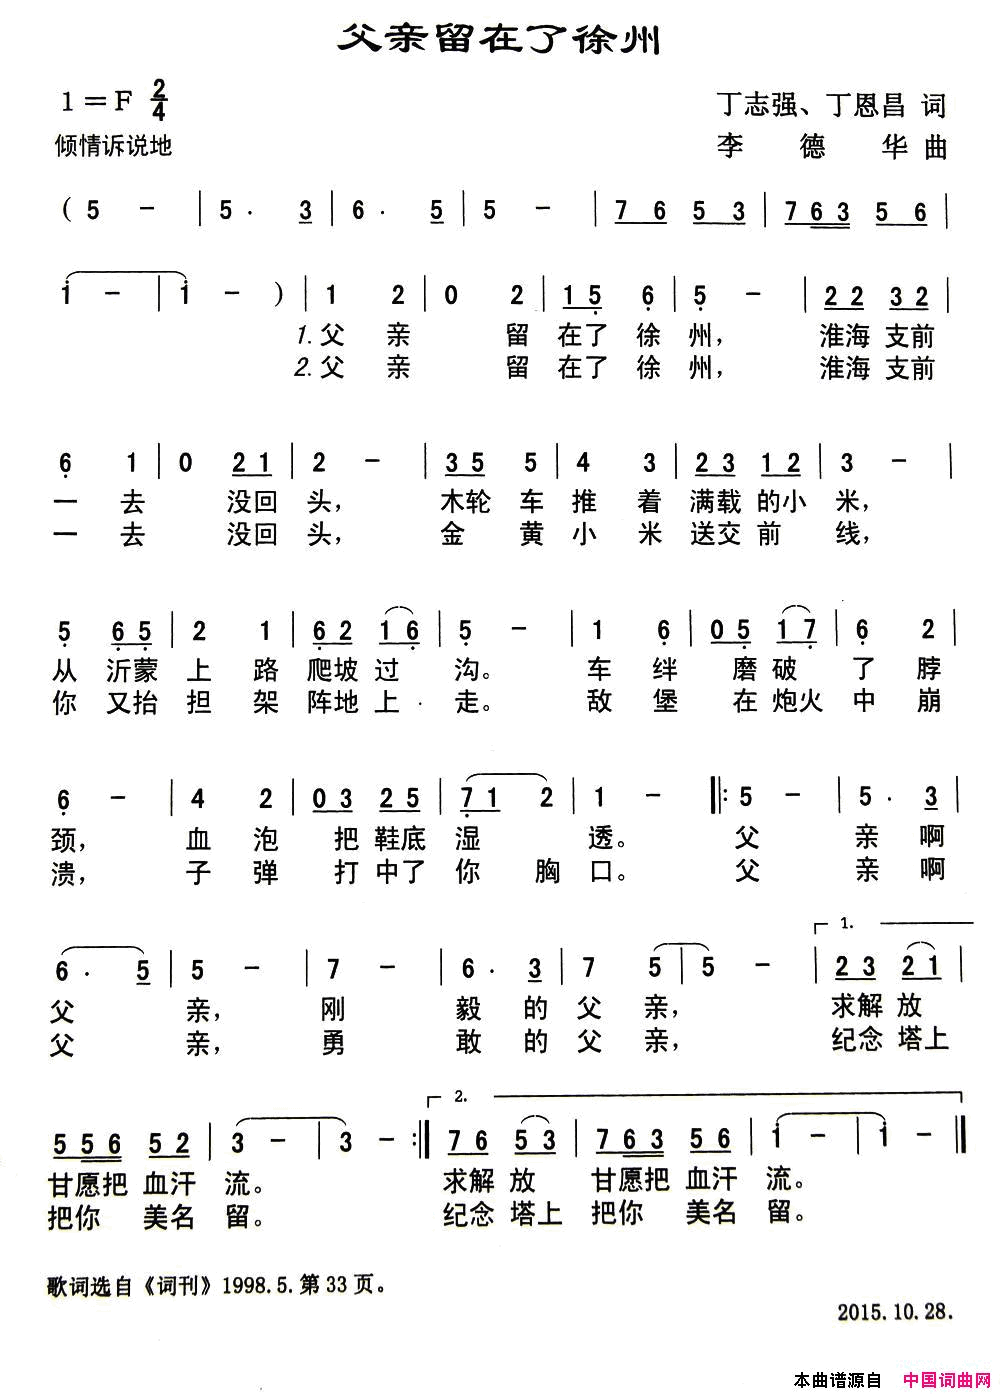 父亲留在了徐州
1＝F 2/4
丁志强、丁恩昌 词
倾情诉说地
李 德 华 曲
( 5 － | 5 · 3 | 6 · 5 | 5 － | 7 6 5 3 | 7 6 3 5 6 |
1 － | 1 － ) | 1 2 | 0 2 | 1 5 6 | 5 － | 2 2 3 2 |
1. 父 亲 留 在了 徐 州， 淮海 支前
2. 父 亲 留 在了 徐 州， 淮海 支前
6 1 | 0 2 1 | 2 － | 3 5 5 | 4 3 | 2 3 1 2 | 3 － |
一 去 没回 头， 木轮 车 推 着 满载 的小 米，
一 去 没回 头， 金 黄 小 米 送交 前 线，
5 6 5 | 2 1 | 6 2 1 6 | 5 － | 1 6 | 0 5 1 7 | 6 2 |
从 沂蒙 上 路 爬坡 过 沟。 车 绊 磨 破 了 脖
你 又抬 担 架 阵地 上 走。 敌 堡 在 炮火 中 崩
6 － | 4 2 | 0 3 2 5 | 7 1 2 | 1 － |: 5 － | 5 · 3 |
颈， 血 泡 把 鞋底 湿 透。 父 亲 啊
溃， 子 弹 打 中了 你 胸 口。 父 亲 啊
1.
6 · 5 | 5 － | 7 － | 6 · 3 | 7 5 | 5 － | 2 3 2 1 |
父 亲， 刚 毅 的 父 亲， 求解 放
父 亲， 勇 敢 的 父 亲， 纪念 塔上
2.
5 5 6 5 2 | 3 － | 3 － :| 7 6 5 3 | 7 6 3 5 6 | 1 － | 1 － ‖
甘愿把 血汗 流。 求解 放 甘愿把 血汗 流。
把你 美名 留。 纪念 塔上 把你 美名 留。
歌词选自《词刊》1998.5.第33页。
2015.10.28.
本曲谱源自 中国词曲网